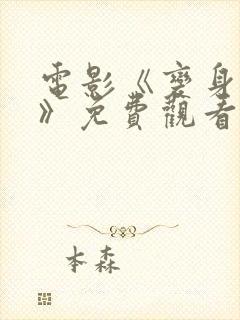 電影《變身
》免費觀看
本森